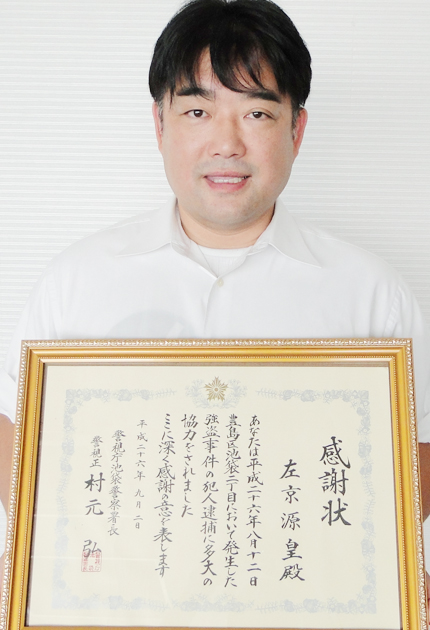 感謝状
左京源皇殿
あなたは平成二十六年八月十二日
豊島区池袋二丁目において発生した
強盗事件の犯人逮捕に多大の
協力をされました
ここに深く感謝の意を表します
平成二十六年九月二日
警視庁池袋警察署長
警視正 村元弘